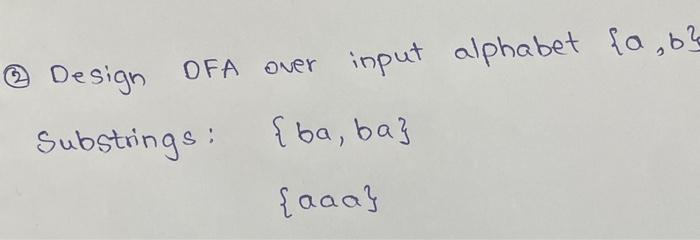 ② Design DFA over input alphabet {a,b}
Substrings: {ba, ba}
{aaa}